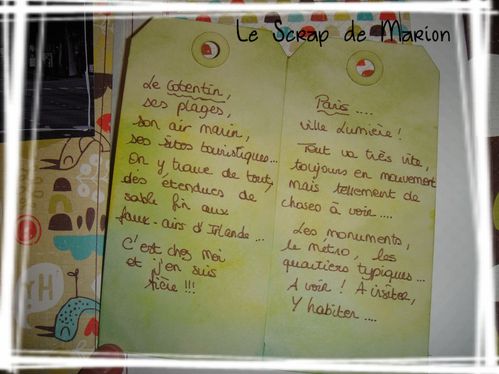 Le Scrap de Marion
Le Cotentin,
ses plages,
son air marin,
ses sites touristiques...
On y trouve de tout,
des étendues de
sable fin aux
faux-airs d'Irlande...
C'est chez moi
et j'en suis
fière !!!
Paris....
Ville Lumière !
Tout va très vite,
toujours en mouvement
mais tellement de
choses à voir....
Les monuments,
le métro, les
quartiers typiques...
A voir ! A visiter,
Y habiter....